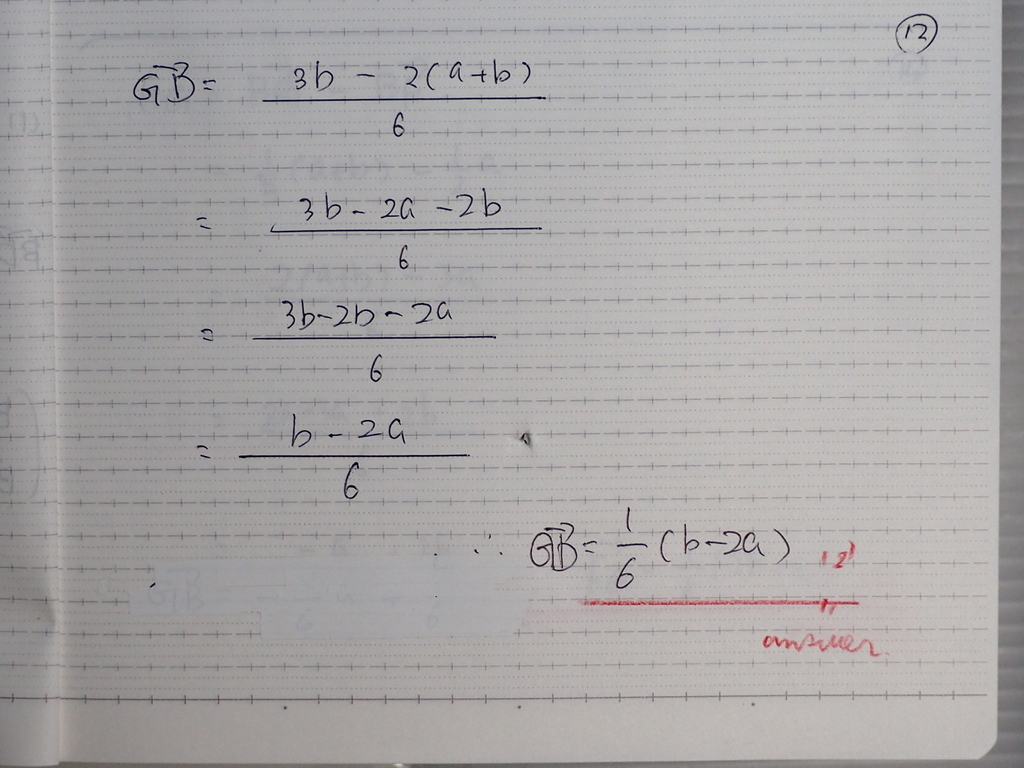 ⑫
GB→ = (3b - 2(a+b))/6
= (3b - 2a - 2b)/6
= (3b-2b-2a)/6
= (b - 2a)/6
∴ GB→ = 1/6 (b-2a)
answer